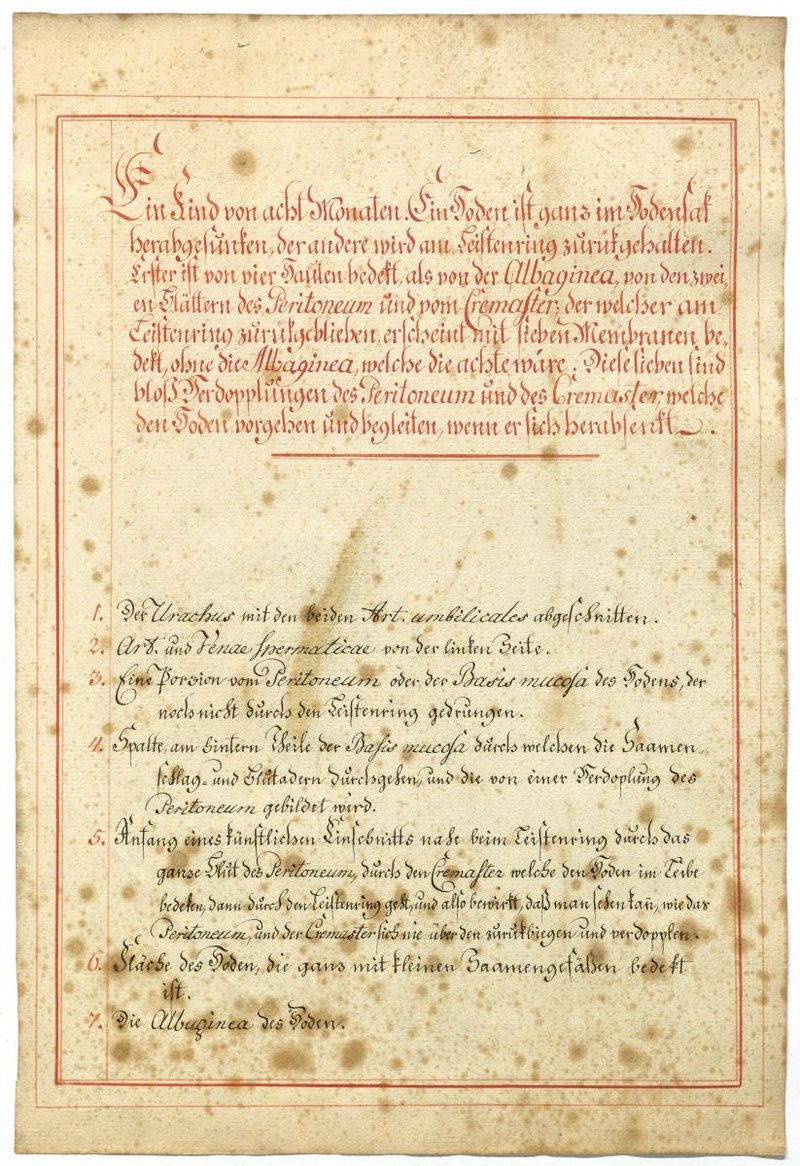 Ein Kind von acht Monaten. Ein Hoden ist ganz im Hodensak
herabgesunken, der andere wird am Leistenring zurükgehalten.
Erster ist von vier Häuten bedekt, als von der Albaginea, von den zwei,
en Blättern des Peritoneum und vom Cremaster; der welcher am
Leistenring zurükgeblieben, erscheint mit sieben Membranen be,
dekt, ohne die Albaginea, welche die achte wäre. Diese sieben sind
bloß Verdopplungen des Peritoneum und des Cremaster, welche
den Hoden vorgehen und begleiten, wenn er sich herabsenkt.
1. Der Urachus mit den beiden Art. umbilicales abgeschnitten.
2. Art. und Venae spermaticae von der linken Seite.
3. Eine Porzion vom Peritoneum oder der Basis mucosa des Hodens, der
noch nicht durch den Leistenring gedrungen.
4. Spalte, am hintern Theile der Basis mucosa durch welchen die Saamen,,
schlag- und Blutadern durchgehen, und die von einer Verdoplung des
Peritoneum gebildet wird.
5. Anfang eines künstlichen Einschnitts nahe beim Leistenring durch das
ganze Blut des Peritoneum, durch den Cremaster welche den Hoden im Leibe
bedeken, dann durch den Leistenring geht, und also bewirkt, daß man sehen kan̄, wie das
Peritoneum, und der Cremaster sich nie über den zurükbiegen und verdopplen.
6. Fläche des Hoden, die ganz mit kleinen Saamengefäßen bedekt
ist.
7. Die Albuginea des Hoden.